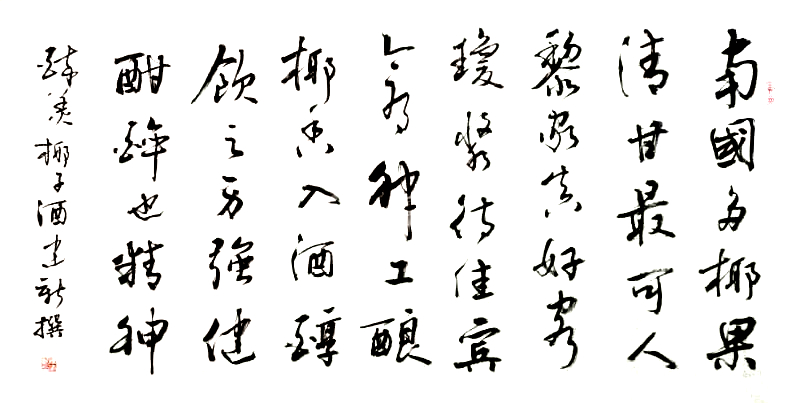 南國多椰果
清甘最可人
黎家真好客
瓊漿待佳宾
今有神工釀
椰香入酒醇
飲之身強健
酣醉也精神
醉美椰子酒建新撰